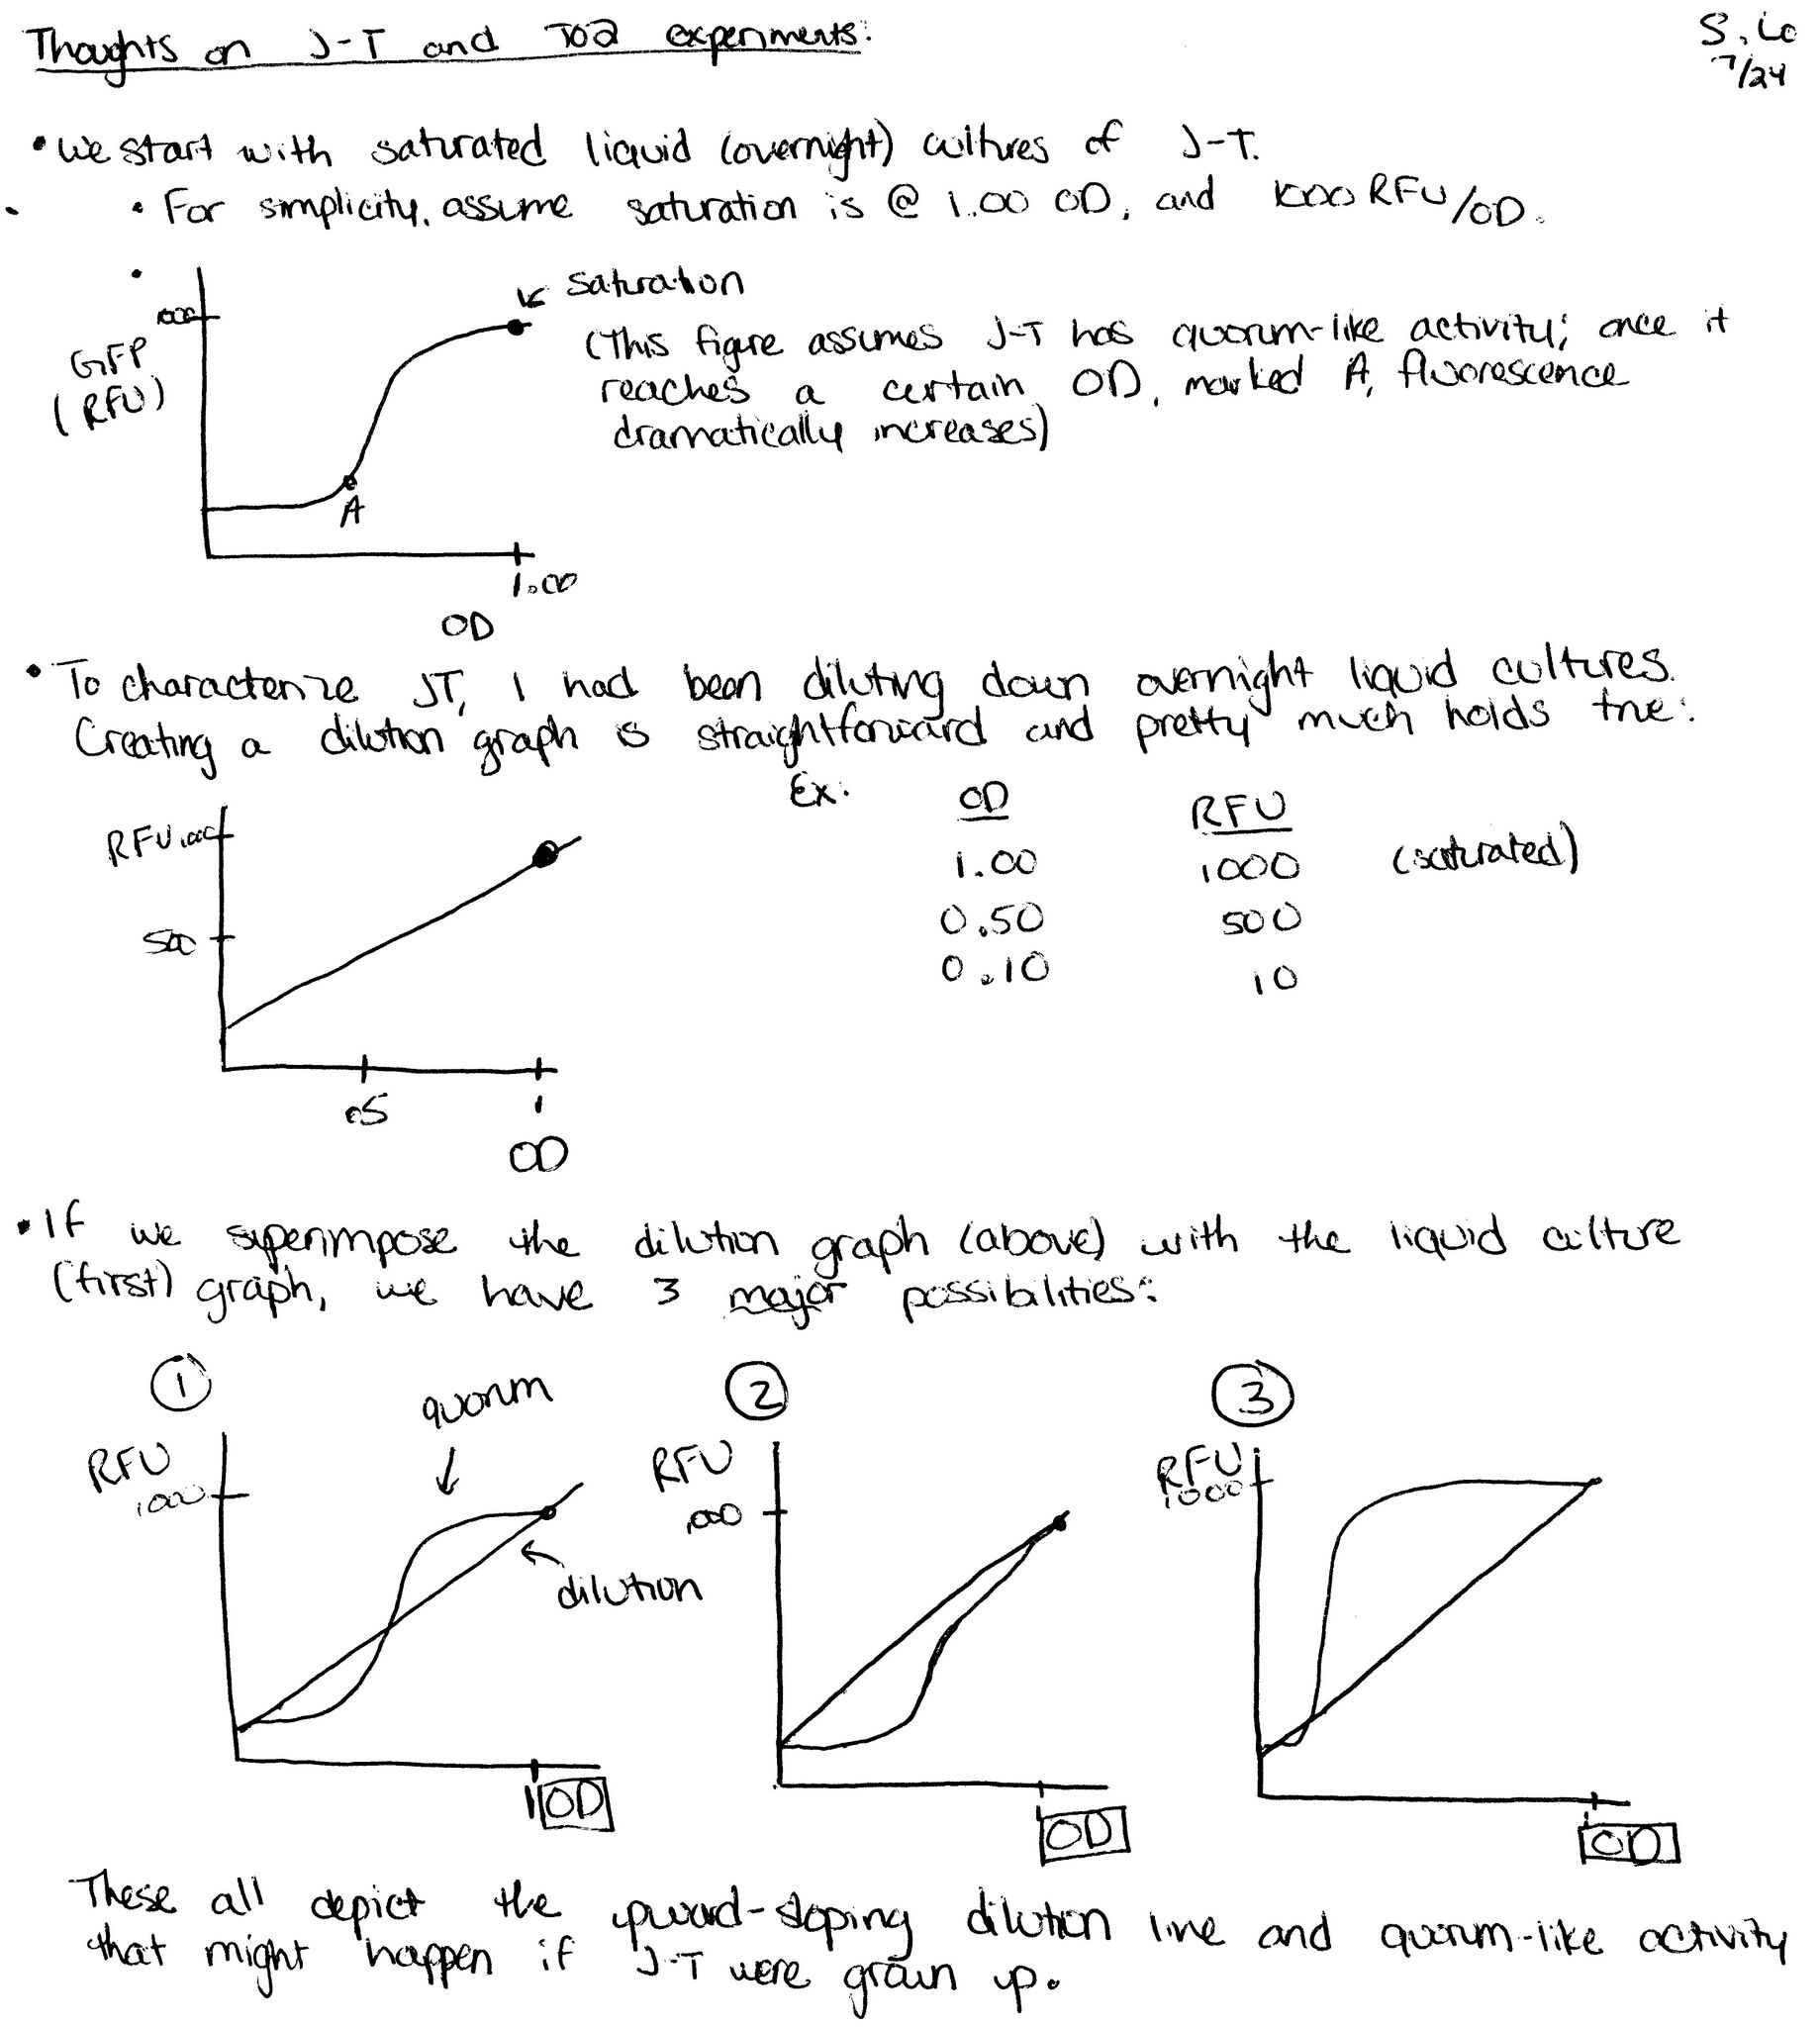 Thoughts on J-T and T02 experiments:
S. Lo
7/24
• We start with saturated liquid (overnight) cultures of J-T.
• For simplicity, assume saturation is @ 1.00 OD, and 1000 RFU/OD.
saturation
1000
GFP
(RFU)
(This figure assumes J-T has quorum-like activity; once it
reaches a certain OD, marked A, fluorescence
dramatically increases)
A
1.00
OD
• To characterize JT, I had been diluting down overnight liquid cultures.
Creating a dilution graph is straightforward and pretty much holds true:
Ex: OD RFU
RFU 1000
1.00 1000 (saturated)
0.50 500
500
0.10 10
.5 1
OD
• If we superimpose the dilution graph (above) with the liquid culture
(first) graph, we have 3 major possibilities:
1 2 3
quorum
RFU RFU RFU
1000 1000 1000
dilution
1 OD OD OD
These all depict the upward-sloping dilution line and quorum-like activity
that might happen if J-T were grown up.